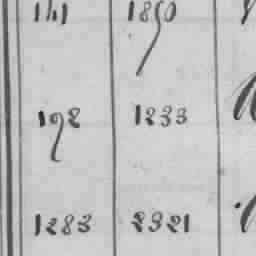 141 1850
192 1233
1283 2321